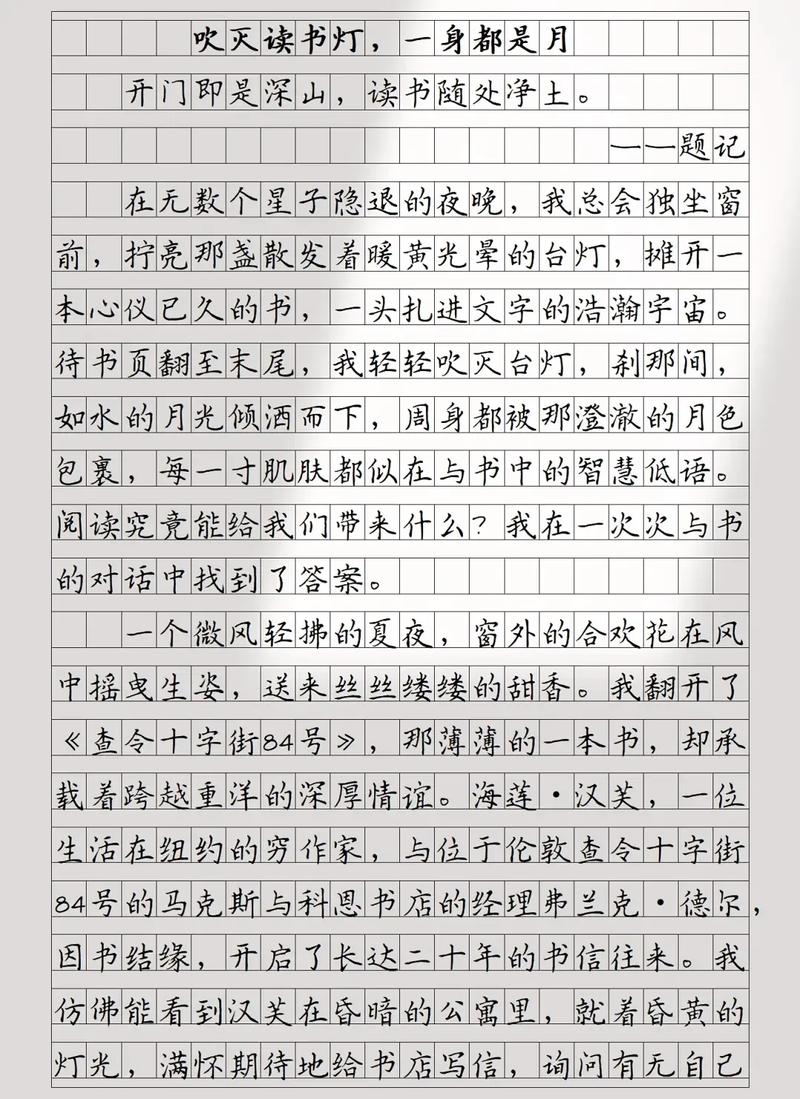 吹灭读书灯，一身都是月
开门即是深山，读书随处净土。
——题记
在无数个星子隐退的夜晚，我总会独坐窗
前，拧亮那盏散发着暖黄光晕的台灯，摊开一
本心仪已久的书，一头扎进文字的浩瀚宇宙。
待书页翻至末尾，我轻轻吹灭台灯，刹那间，
如水的月光倾洒而下，周身都被那澄澈的月色
包裹，每一寸肌肤都似在与书中的智慧低语。
阅读究竟能给我们带来什么？我在一次次与书
的对话中找到了答案。
一个微风轻拂的夏夜，窗外的合欢花在风
中摇曳生姿，送来丝丝缕缕的甜香。我翻开了
《查令十字街84号》，那薄薄的一本书，却承
载着跨越重洋的深厚情谊。海莲·汉芙，一位
生活在纽约的穷作家，与位于伦敦查令十字街
84号的马克斯与科恩书店的经理弗兰克·德尔，
因书结缘，开启了长达二十年的书信往来。我
仿佛能看到汉芙在昏暗的公寓里，就着昏黄的
灯光，满怀期待地给书店写信，询问有无自己